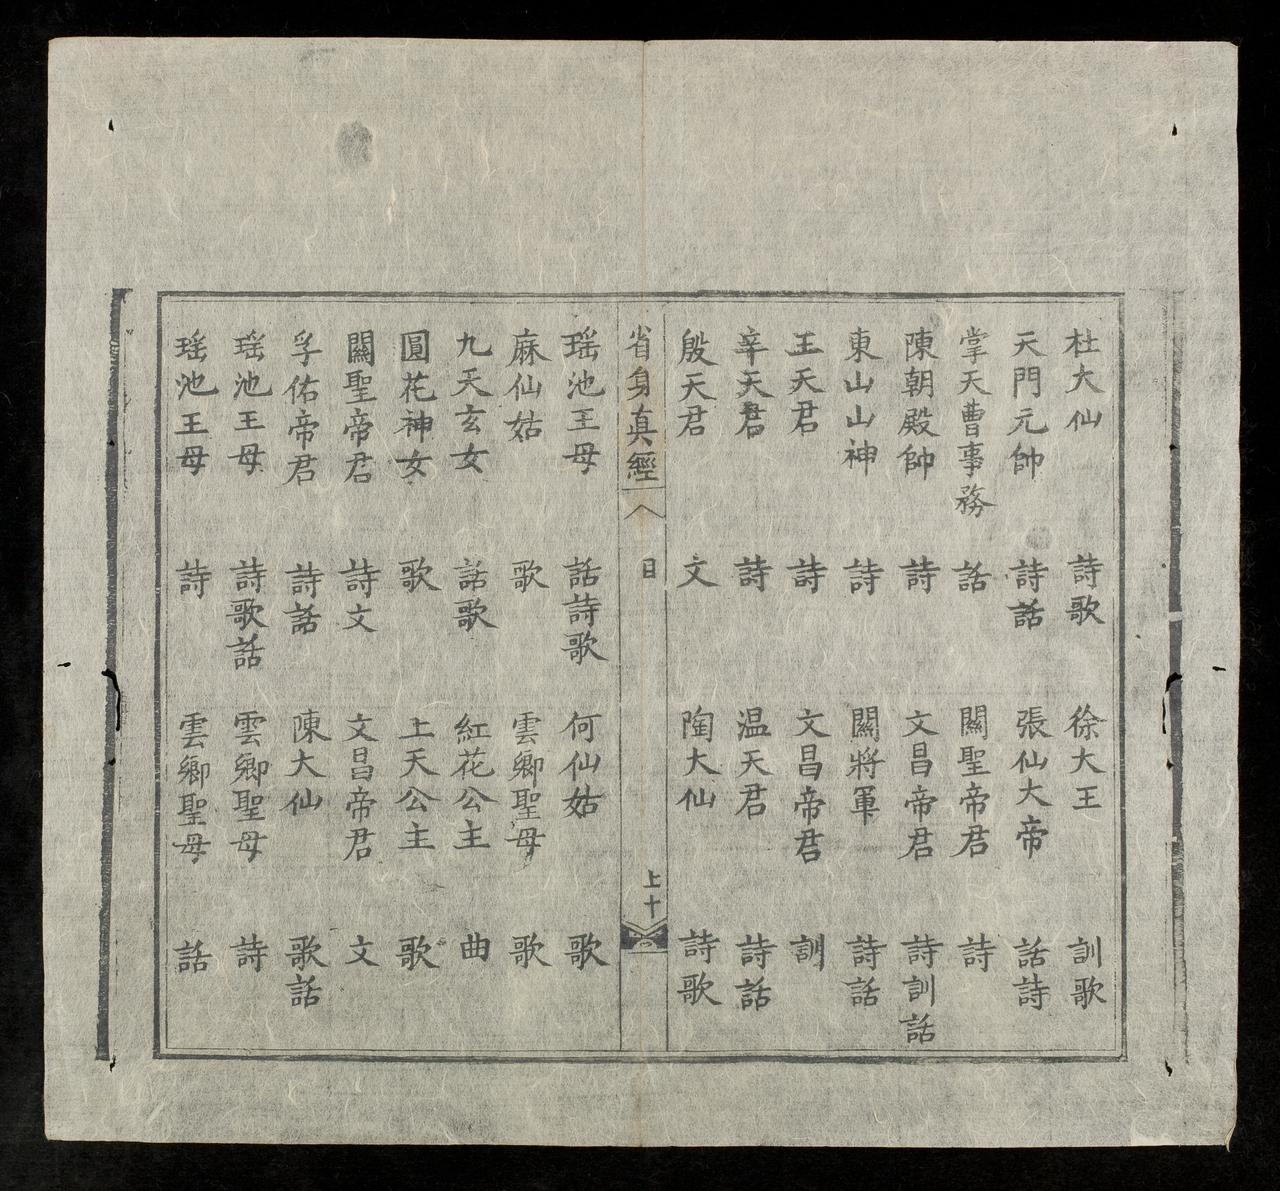 杜大仙 詩歌 徐大王 訓歌
天門元帥 詩話 張仙大帝 話詩
掌天曹事務 話 關聖帝君 詩
陳朝殿帥 詩 文昌帝君 詩訓話
東山山神 詩 關將軍 詩話
王天君 詩 文昌帝君 訓
辛天君 詩 温天君 詩話
殷天君 文 陶大仙 詩歌
省身真經 八 目 上十
瑶池王母 話詩歌 何仙姑 歌
麻仙姑 歌 雲鄉聖母 歌
九天玄女 話歌 紅花公主 曲
圓花神女 歌 上天公主 歌
關聖帝君 詩文 文昌帝君 文
孚佑帝君 詩話 陳大仙 歌話
瑶池王母 詩歌話 雲鄉聖母 詩
瑶池王母 詩 雲鄉聖母 話